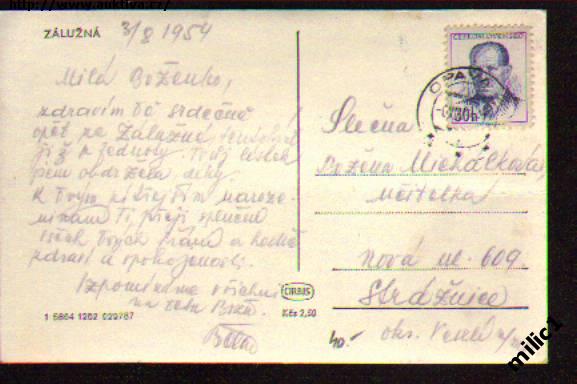 http://www.aukro.cz/
ZÁLUŽNÁ
3/8 1954
Milá Boženko,
zdravím Tě srdečně
opět ze Zálužné
již z jednoty. Tvůj lístek
jsem obdržela, díky.
K Tvým naroze-
ninám Ti přeji splnění
všech Tvých přání a hodně
zdraví a spokojenosti.
Vzpomínáme všichni
na
ORBIS
Kčs 2,50
1 5864 1202 029767
ČESKOSLOVENSKO
OPAVA
Slečna
Božena Michálková,
učitelka
Nová ul. 609.
Strážnice
okr. Veselí n/M
40.-
milic1